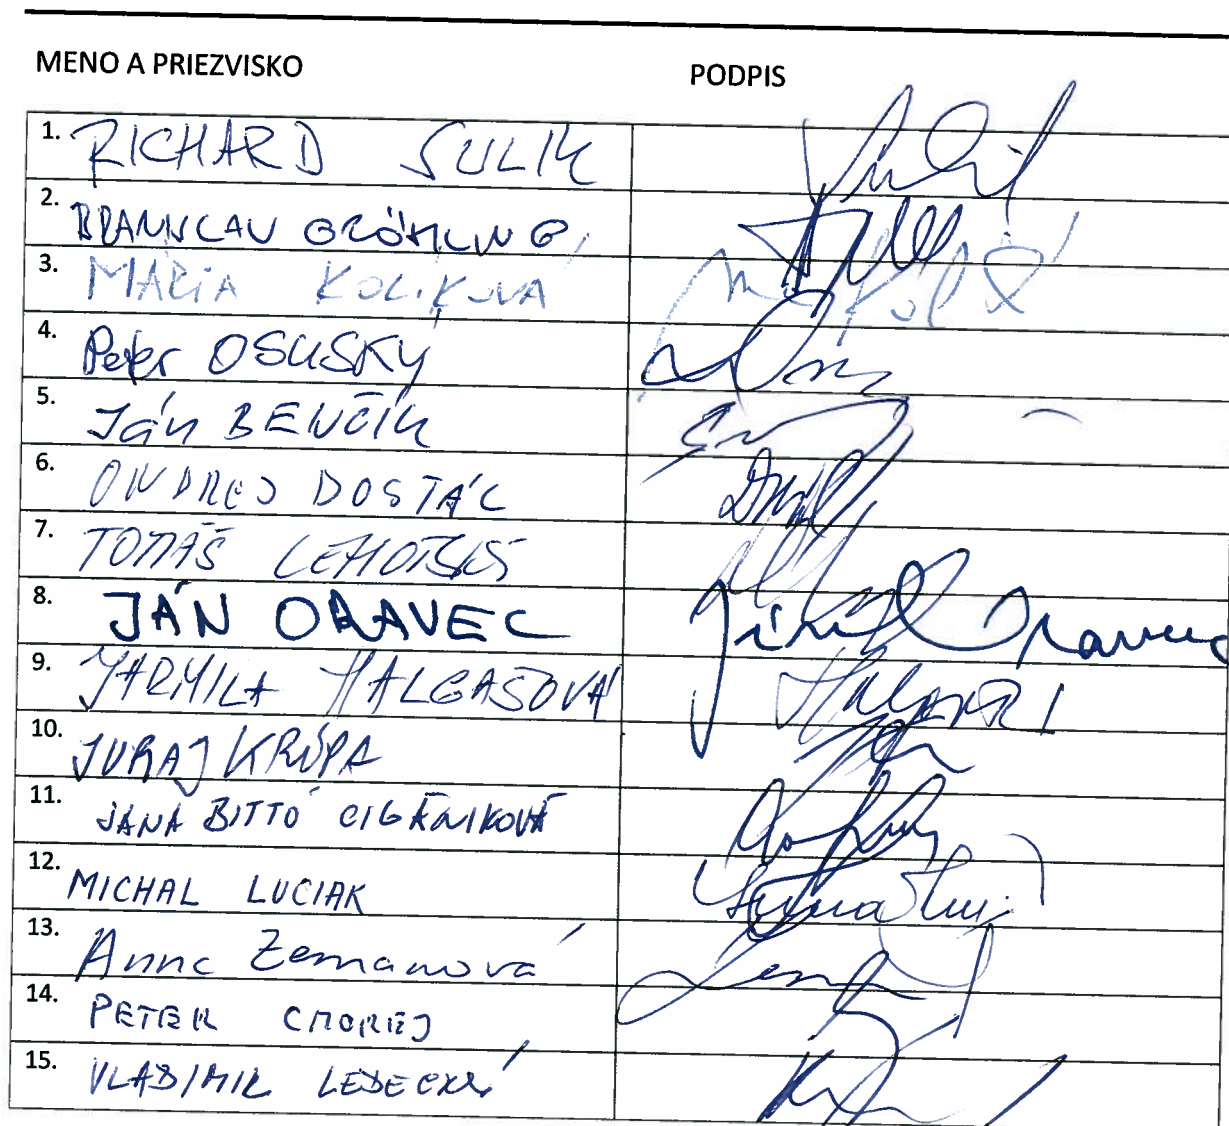 MENO A PRIEZVISKO PODPIS
1. RICHARD SULIK
2. BRANISLAV GRÖHLING
3. MÁRIA KOLÍKOVÁ
4. Peter OSUSKÝ
5. Ján BENČÍK
6. ONDREJ DOSTÁL
7. TOMÁŠ LEHOTSKÝ
8. JÁN ORAVEC
9. JARMILA HALGAŠOVÁ
10. JURAJ KRÚPA
11. JANA BITTÓ CIGÁNIKOVÁ
12. MICHAL LUCIAK
13. Anna Zemanová
14. PETER CMOREJ
15. VLADIMIR LEDECKÝ